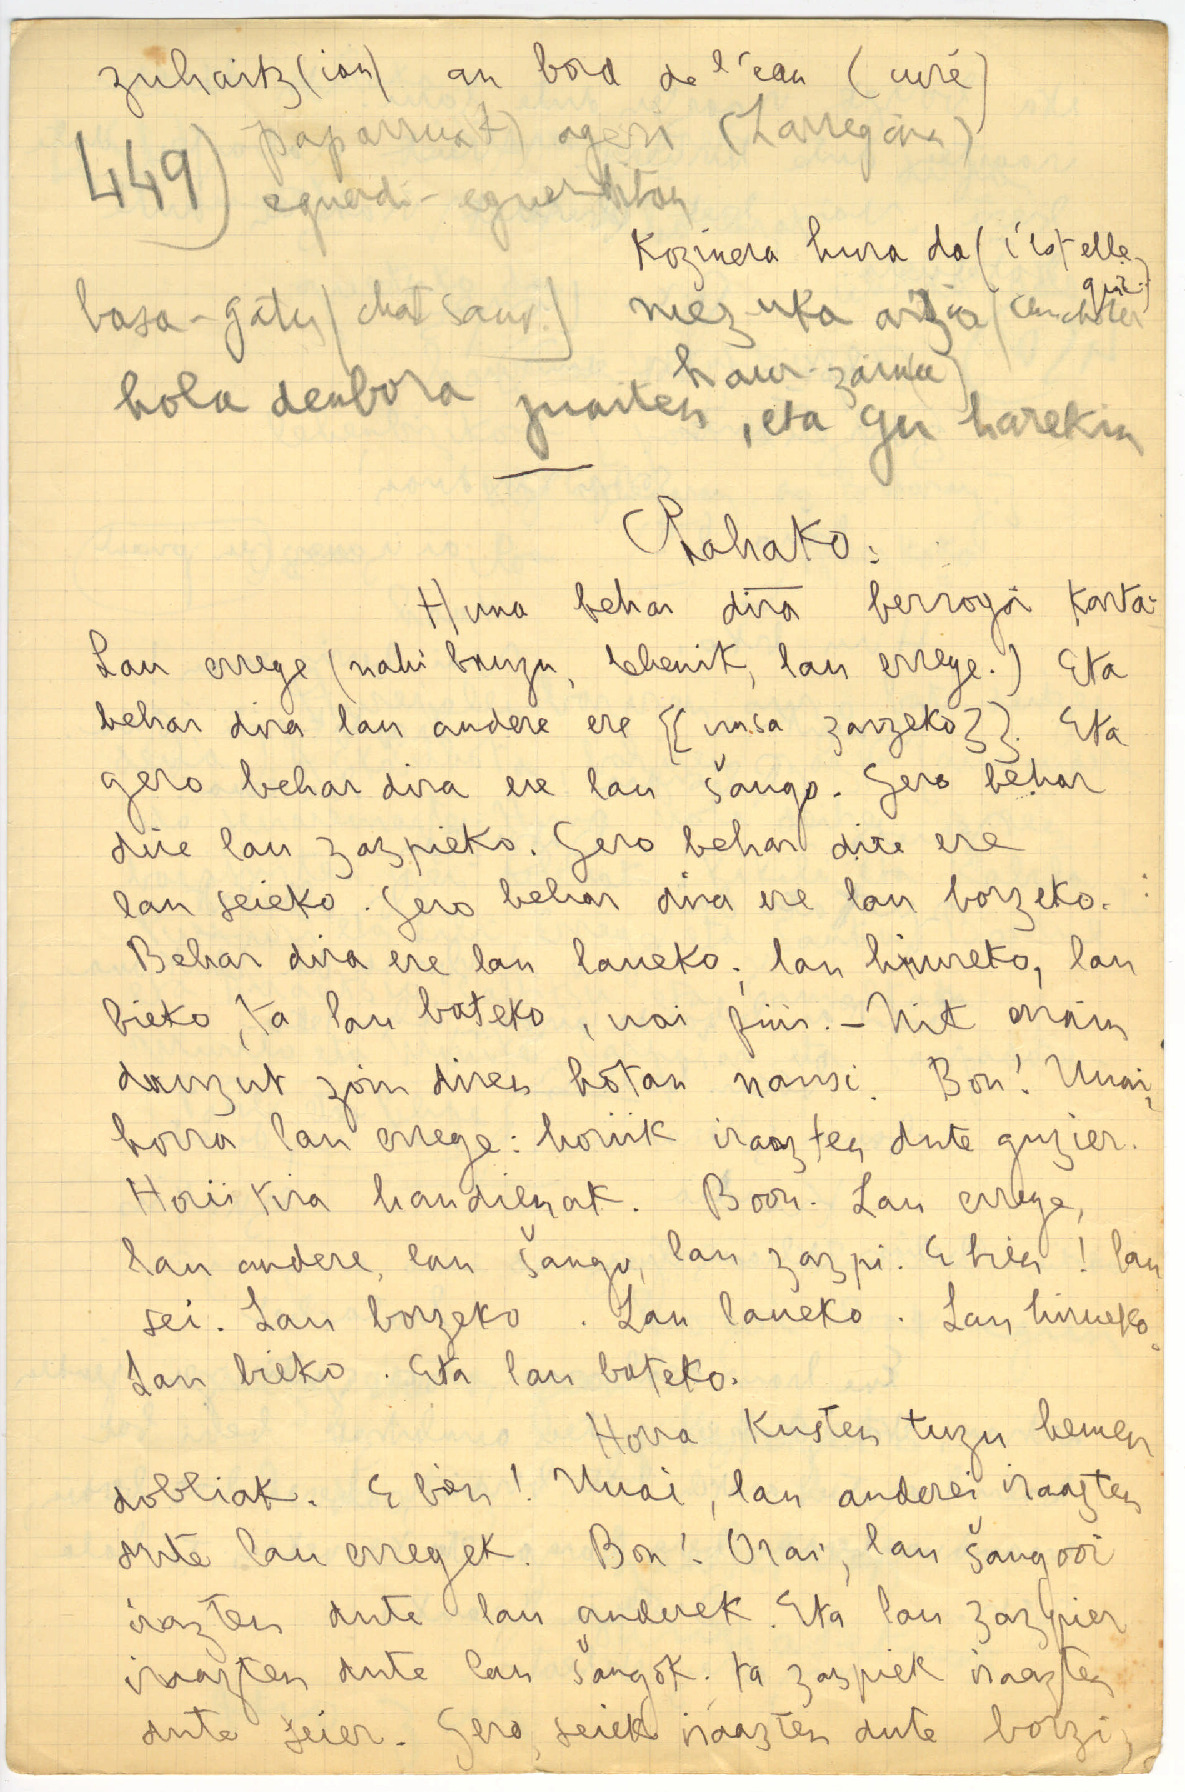 zuhaitz(ian) au bord de l'eau (curé)
449) paparruat) ageri (Larregain)
eguerdi - eguerditan
Kozinera hura da (c'est elle qui..)
basa-gatu (chat sauv.) mez-uka
haur-zainu
hola denbora juaiten, eta gu harekin
Rahako:
Huna behar dira berrogoi karta:
Lau errege (nahi bauzu, lehenik, lau errege.) Eta
behar dira lau andere ere {{ zarzeko}}. Eta
gero behar dira ere lau šango. Gero behar
dire lau zazpieko. Gero behar dire ere
lau seieko. Gero behar dira ere lau borzeko.
Behar dira ere lau laueko, lau hirureko, lau
bieko, ta lau bateko, nai . - Nik erräin
dauzut zoin diren hotan nausi. Bon! Unai,
horra lau errege: horiik iraazten dute guzier.
Horii tira handienak. Boon. Lau errege,
lau andere, lau šango, lau zazpi. E bien! lau
sei. Lau borzeko. Lau laueko. Lau hirueko.
Lau bieko. Eta lau bateko.
Horra kusten tuzu hemen
dobliak. E bien! Unai, lau anderei iraazten
dute lau erregek. Bon! Orai, lau šangooi
irazten dute lau anderek. Eta lau zazpier
iraazten dute lau šangok. ta zazpiek iraazten
dute seier. Gero, seiek iraazten dute borzi,